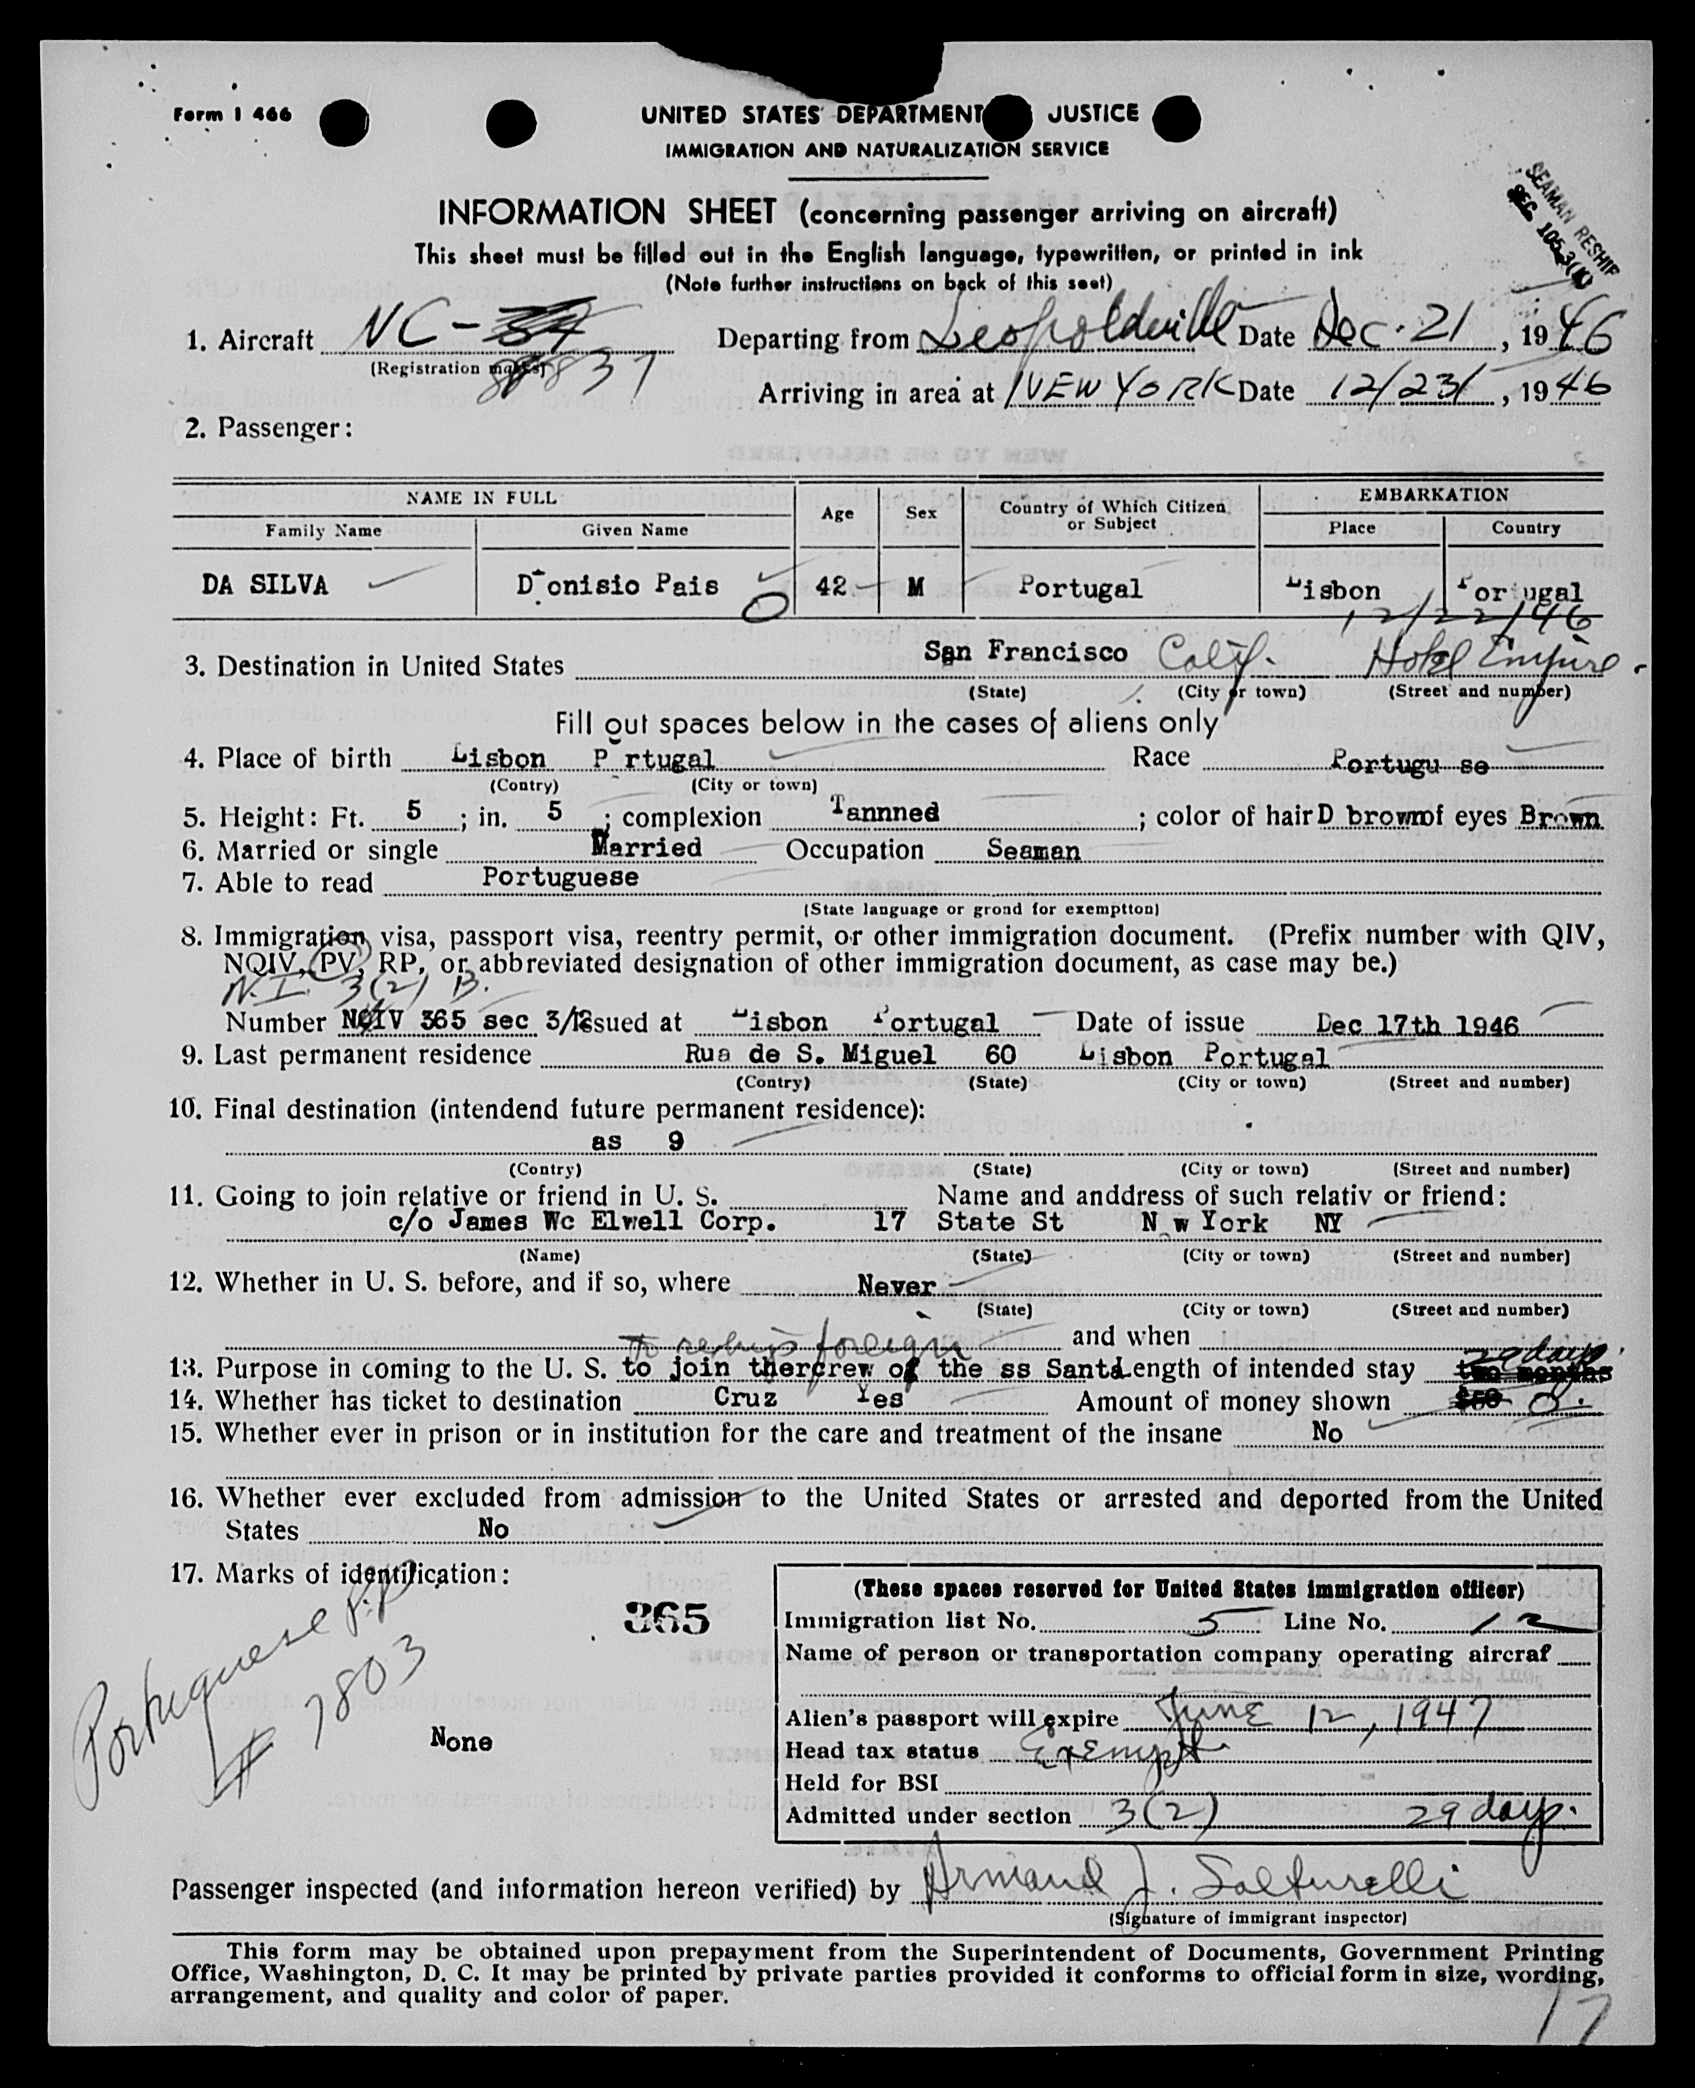 Form I 466
UNITED STATES DEPARTMENT JUSTICE
IMMIGRATION AND NATURALIZATION SERVICE
SEAMAN RESHIP
SEC 105.3(10)
INFORMATION SHEET (concerning passenger arriving on aircraft)
This sheet must be filled out in the English language, typewritten, or printed in ink
(Note further instructions on back of this seet)
1. Aircraft NC- 88837 Departing from Leopoldville Date Dec. 21, 1946
(Registration marks)
Arriving in area at NEW YORK Date 12/23/, 1946
2. Passenger:
NAME IN FULL Age Sex Country of Which Citizen or Subject EMBARKATION
Family Name Given Name Place Country
DA SILVA Dionisio Pais 42 M Portugal Lisbon Portugal
12/22/46
3. Destination in United States San Francisco Calif. Hotel Empire.
(State) (City or town) (Street and number)
Fill out spaces below in the cases of aliens only
4. Place of birth Lisbon P rtugal Race Portugu se
(Contry) (City or town)
5. Height: Ft. 5; in. 5; complexion Tannned; color of hair D brown of eyes Brown
6. Married or single Married Occupation Seaman
7. Able to read Portuguese
(State language or grond for exemptton)
8. Immigration visa, passport visa, reentry permit, or other immigration document. (Prefix number with QIV,
NQIV, PV, RP, or abbreviated designation of other immigration document, as case may be.)
N.I. 3(2) B.
Number NQIV 365 sec 3/12 issued at Lisbon Portugal Date of issue Dec 17th 1946
9. Last permanent residence Rua de S. Miguel 60 Lisbon Portugal
(Contry) (State) (City or town) (Street and number)
10. Final destination (intendend future permanent residence):
as 9
(Contry) (State) (City or town) (Street and number)
11. Going to join relative or friend in U. S. Name and anddress of such relativ or friend:
c/o James Wc Elwell Corp. 17 State St N w York NY
(Name) (State) (City or town) (Street and number)
12. Whether in U. S. before, and if so, where Never
(State) (City or town) (Street and number)
To reship foreign and when
29 days.
13. Purpose in coming to the U. S. to join thercrew of the ss Santa Length of intended stay two months
14. Whether has ticket to destination Cruz Yes Amount of money shown $50 0.
15. Whether ever in prison or in institution for the care and treatment of the insane No
16. Whether ever excluded from admission to the United States or arrested and deported from the United
States No
17. Marks of identification:
Portuguese P.P.
# 7803
365
None
(These spaces reserved for United States immigration officer)
Immigration list No. 5 Line No. 12
Name of person or transportation company operating aircraf
Alien's passport will expire JUNE 12, 1947
Head tax status Exempt
Held for BSI
Admitted under section 3(2) 29 days.
Passenger inspected (and information hereon verified) by Armand J. Salturelli
(Signature of immigrant inspector)
This form may be obtained upon prepayment from the Superintendent of Documents, Government Printing
Office, Washington, D. C. It may be printed by private parties provided it conforms to official form in size, wording,
arrangement, and quality and color of paper.
17